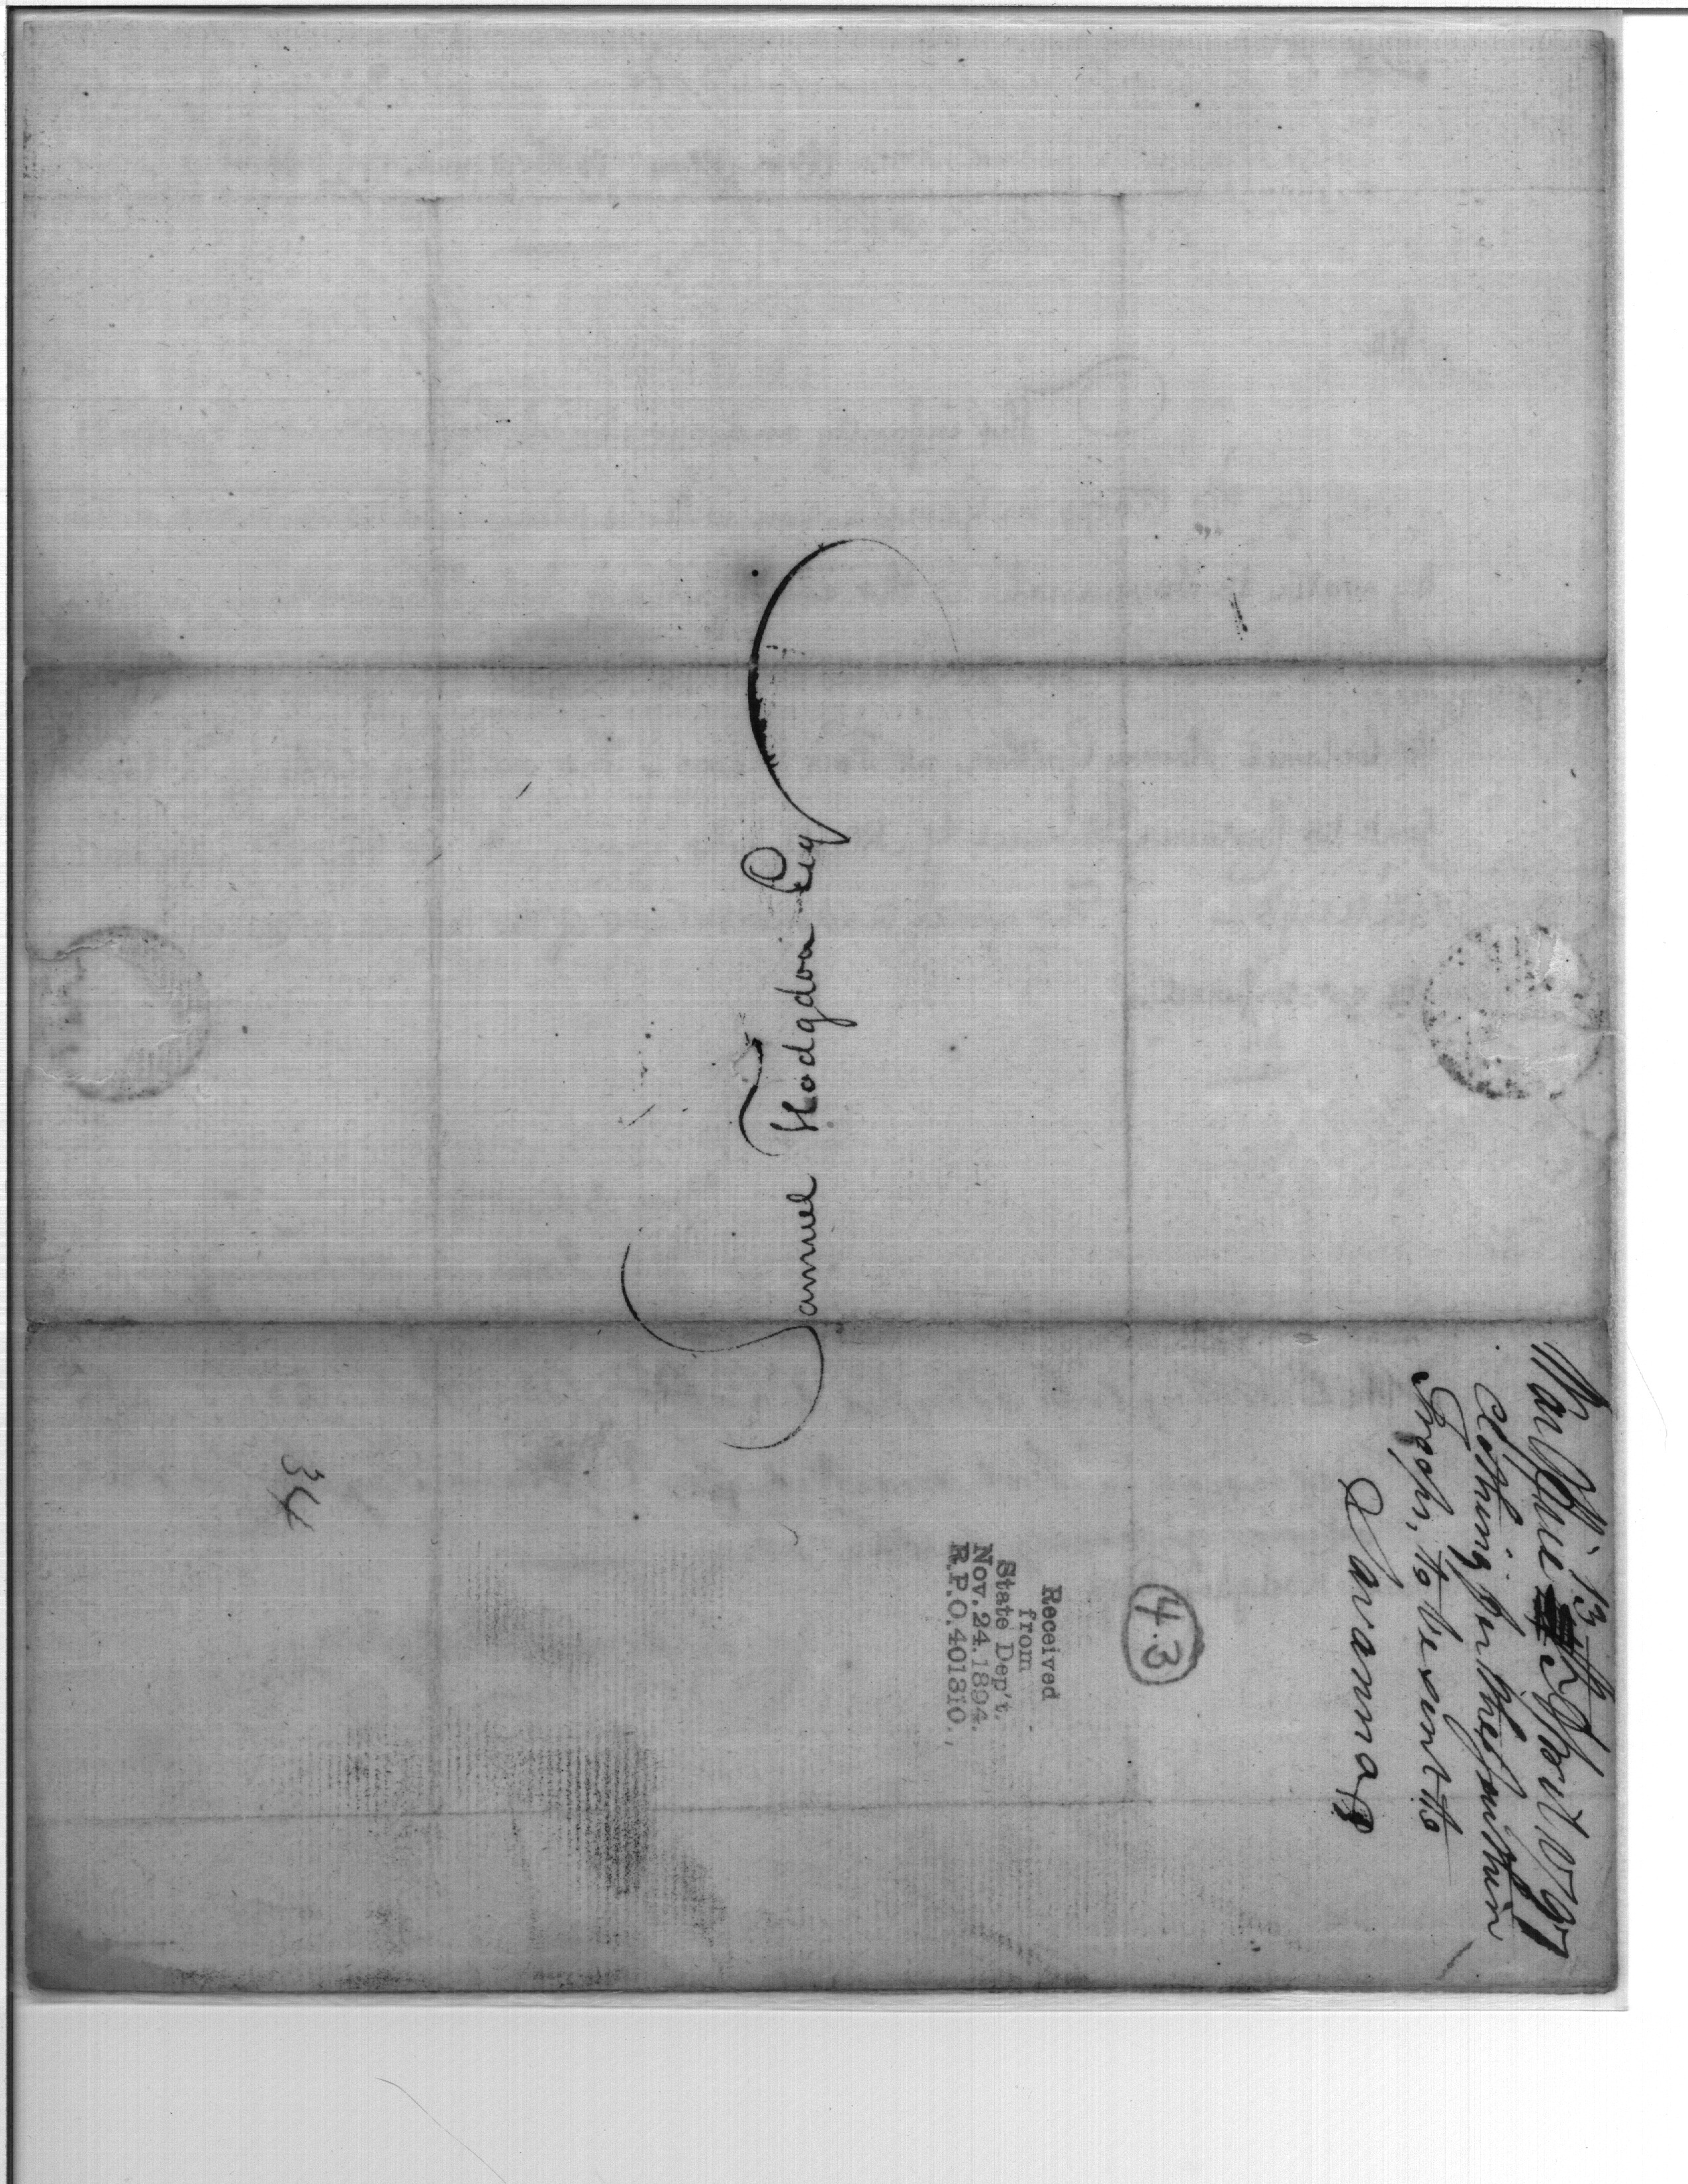 Samuel Hodgdon Esq
War Office 13th April 1797
Clothing for the Southern
Troops, to be sent to
Savanna
4.3
Received
from
State Dep't.
Nov. 24. 1894.
R.P.O. 401810.
34